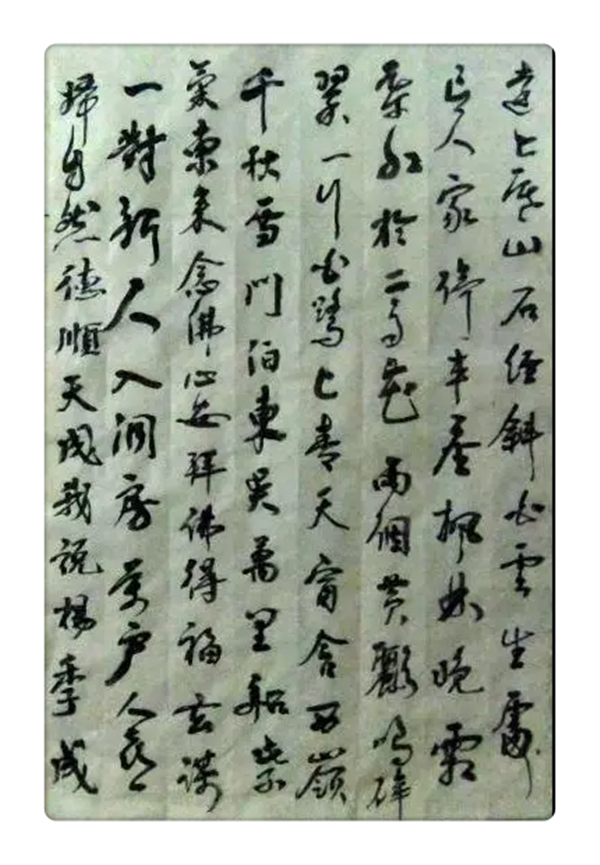 遠上寒山石徑斜白雲生處
有人家停車坐楓林晚霜
葉紅於二月花兩個黃鸝鳴
翠一行白鷺上青天窗含西嶺
千秋雪門泊東吳萬里船紫
氣東來念佛心安拜佛得福玄謀
一對新人入洞房萬戶人
自然德順天成我說楊季成